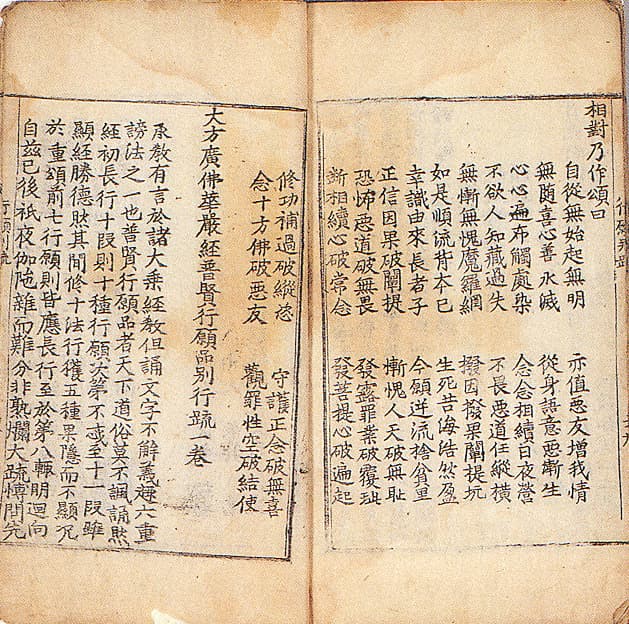 相對乃作頌曰
自從無始起無明 亦值惡友增我情
無随喜心善水減 從身語意惡漸生
心心遍布觸處染 念念相續日夜營
不欲人知藏過失 不長惡道任縱橫
無慚無愧魔羅網 撥因撥果闡提坑
如是順流背本已 生死苦海浩然盈
幸識由來長者子 今願逆流捨貧里
正信因果破闡提 慚愧人天破無耻
恐怖惡道破無畏 發露罪業破覆玼
斷相續心破常念 發菩提心破遍起
修功補過破縱恣 守護正念破無喜
念十方佛破惡友 觀罪性空破結使
大方廣佛華嚴經普賢行願品別行疏一卷
承敎有言於諸大乘經敎但誦文字不解義趣六重
謗法之一也普賢行願品者天下道俗莫不諷誦然
經初長行十段則十種行願次第不惑至十一段雖
顯經勝德然其間修十法行獲五種果隱而不顯况
於重頌前七行願則皆應長行至於第八轉明迴向
自玆已後祇夜伽陁雜而難分非熟爛大疏愽閑先